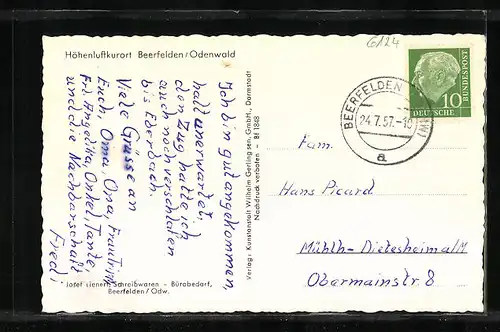 Höhenluftkurort Beerfelden/Odenwald
Ich bin gut angekommen,
hall unerwartet,
den Zug hatte ich
auch noch verschlafen
bis Eberbach.
Viele Grüsse an
Euch, Oma, Opa, Frau
Frl. Angelika, Onkel, Tante,
und die Nachbarschaft
Fredi
Josef Ienert, Schreibwaren - Bürobedarf,
Beerfelden/Odw.
Verlag: Kunstanstalt Wilhelm Gerling sen. GmbH., Darmstadt
Nachdruck verboten - Bf 1848
6124
BEERFELDEN
24.7.57.-10
a
10
DEUTSCHE
BUNDESPOST
Fam.
Hans Picard
Mühlh-Dietesheim a/M
Obermainstr. 8